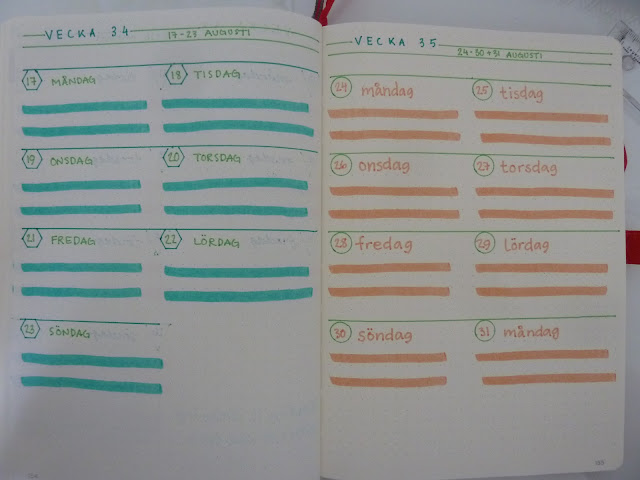 VECKA 34 17-23 AUGUSTI
17 MÅNDAG 18 TISDAG
19 ONSDAG 20 TORSDAG
21 FREDAG 22 LÖRDAG
23 SÖNDAG
VECKA 35 24-30+31 AUGUSTI
24 måndag 25 tisdag
26 onsdag 27 torsdag
28 fredag 29 Lördag
30 söndag 31 måndag